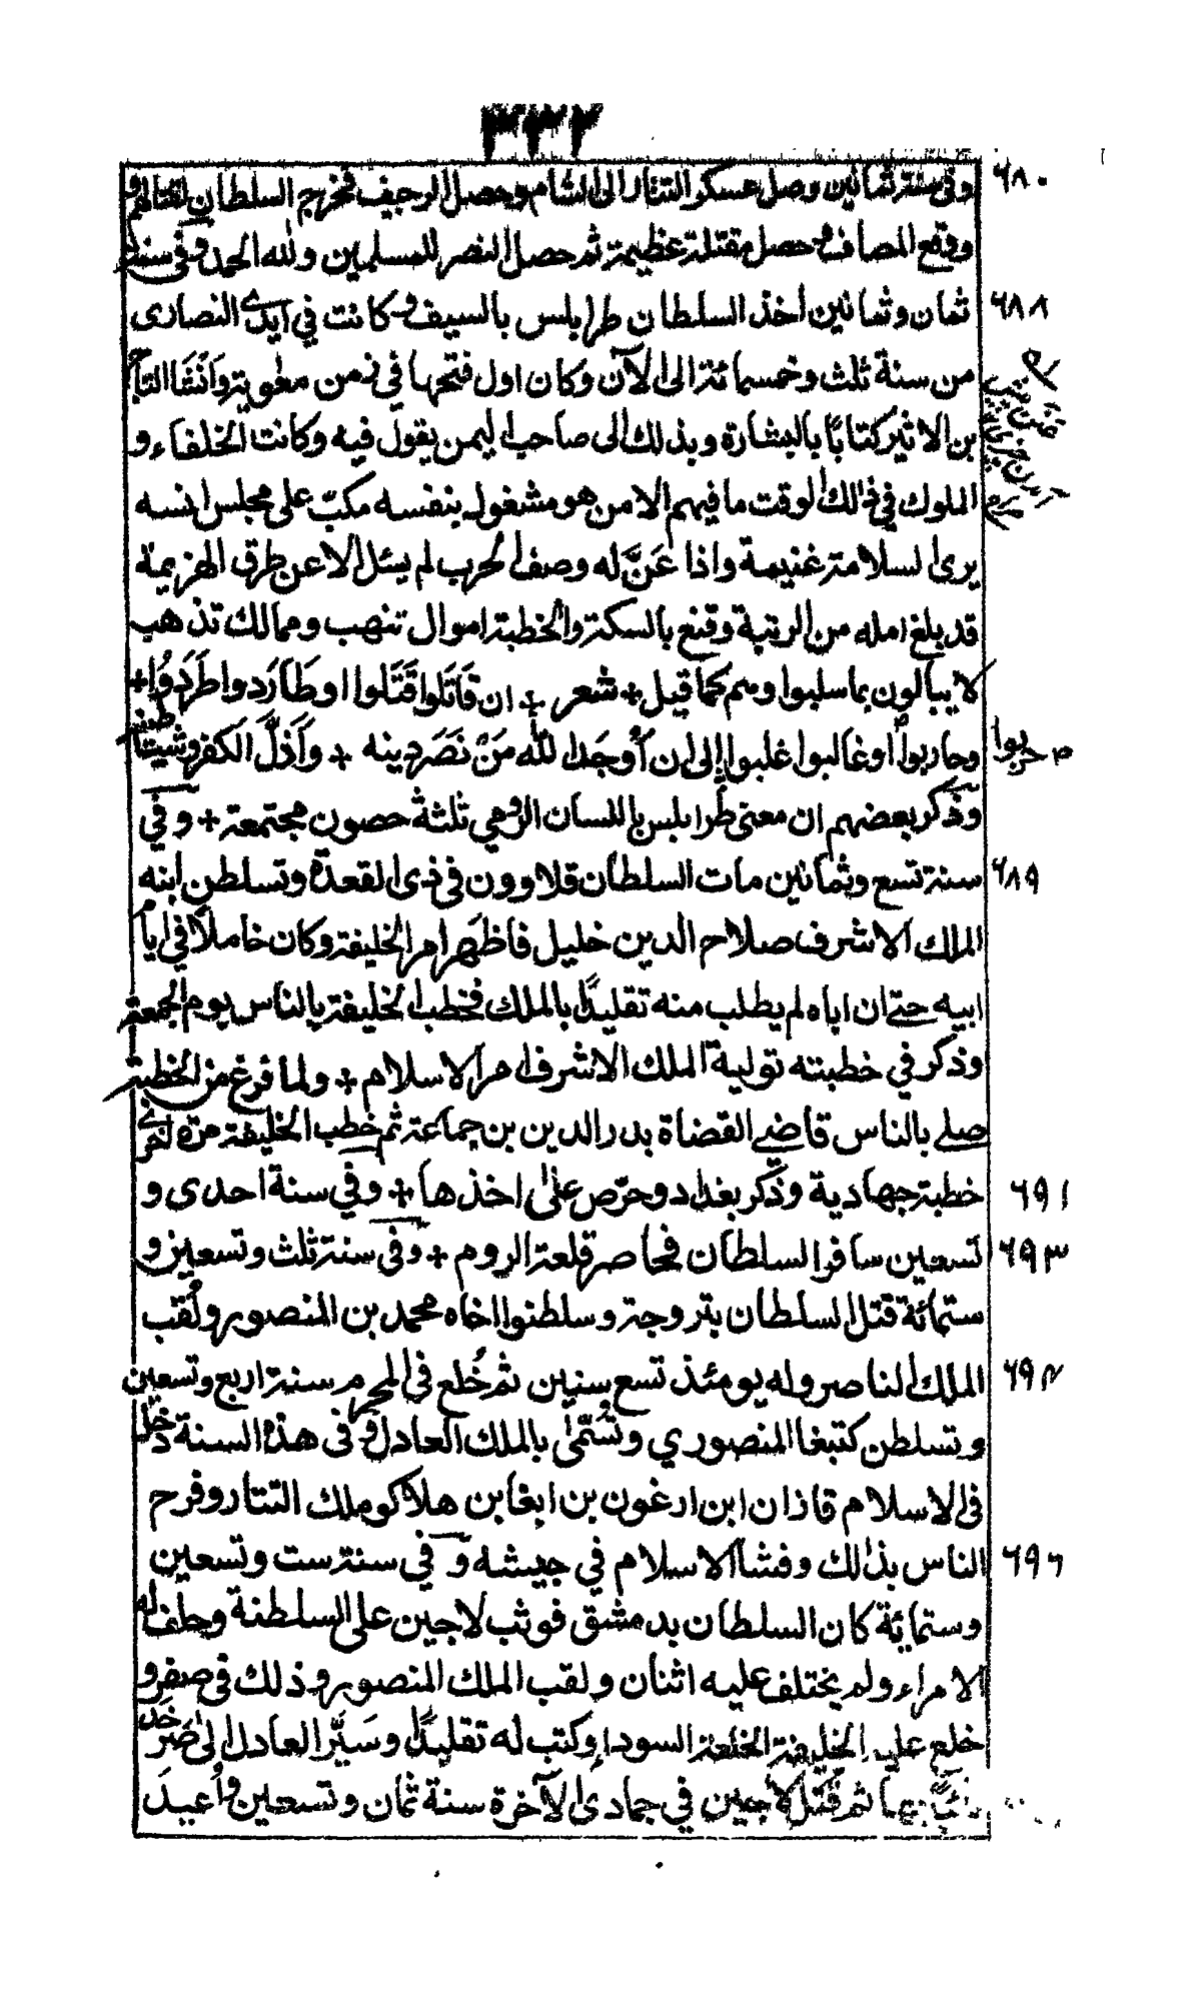 ٣٣٢
وفى سنة ثمانين وصل عسكر التتار الى الشام وحصل الرجيف فخرج السلطان لقتالهم
ووقع المصاف وحصل مقتلة عظيمة ثم حصل النصر للمسلمين ولله الحمد وفى سنة
ثمان وثمانين اخذ السلطان طرابلس بالسيف وكانت في ايدى النصارى
من سنة ثلث وخمسمائة الى الآن وكان اول فتحها في زمن معوية وانشا التاج
بن الاثير كتابًا بالبشارة وبذلك الى صاحب اليمن يقول فيه وكانت الخلفاء و
الملوك في ذالك الوقت ما فيهم الا من هو مشغول بنفسه مكبّ على مجلس انسه
يرى السلامة غنيمة واذا عَنَّ له وصف الحرب لم يسئل الا عن طرق الهزيمة
قد بلغ امله من الرتبة وقنع بالسكة والخطبة اموال تنهب وممالك تذهب
لا يبالون بما سلبوا وهم كما قيل + شعر + ان قَاتَلوا قَتَلوا او طَارَدوا طَرَدُوا +
وحاربوا او غالبوا غلبوا إلى ان أَوجَدَ الله مَنْ نَصَرَ دينه + وَاَذَلَّ الكفر وشيعته
وذكر بعضهم ان معنى طرابلس باللسان الرومي ثلثة حصون مجتمعة + وفي
سنة تسع وثمانين مات السلطان قلاوون فى ذى القعدة وتسلطن ابنه
الملك الاشرف صلاح الدين خليل فاظهر امر الخليفة وكان خاملًا في ايام
ابيه حتى ان اباه لم يطلب منه تقليدًا بالملك فخطب الخليفة بالناس يوم الجمعة
وذكر في خطبته تولية الملك الاشرف امر الاسلام + ولما فرغ من الخطبة
صلى بالناس قاضى القضاة بدر الدين بن جماعة ثم خطب الخليفة مرة اخرى
خطبة جهادية وذكر بغداد وحرّص على اخذها + وفي سنة احدى و
تسعين سافر السلطان فحاصر قلعة الروم + وفى سنة ثلث وتسعين و
ستمائة قتل السلطان بتروجة وسلطنوا اخاه محمد بن المنصور ولُقب
الملك الناصر وله يومئذ تسع سنين ثم خُلع فى المحرم سنة اربع وتسعين
وتسلطن كتبغا المنصوري وتسُمّى بالملك العادل وفى هذه السنة دخل
فى الاسلام قازان ابن ارغون بن ابغا بن هلاكو ملك التتار وفرح
الناس بذالك وفشا الاسلام في جيشه وفى سنة ست وتسعين
وستمائة كان السلطان بدمشق فوثب لاجين على السلطنة وحلف له
الامراء ولم يختلف عليه اثنان ولقب الملك المنصور وذلك فى صفر و
خلع عليه الخليفة الخلعة السوداء وكتب له تقليدًا وسَيَّر العادل الى صَرخد
نائبًا بها ثم قُتل لاجين في جمادى الآخرة سنة ثمان وتسعين وأعيد
٦٨٠
٦٨٨
حربوا
٦٨٩
٦٩١
٦٩٣
٦٩٤
٦٩٦